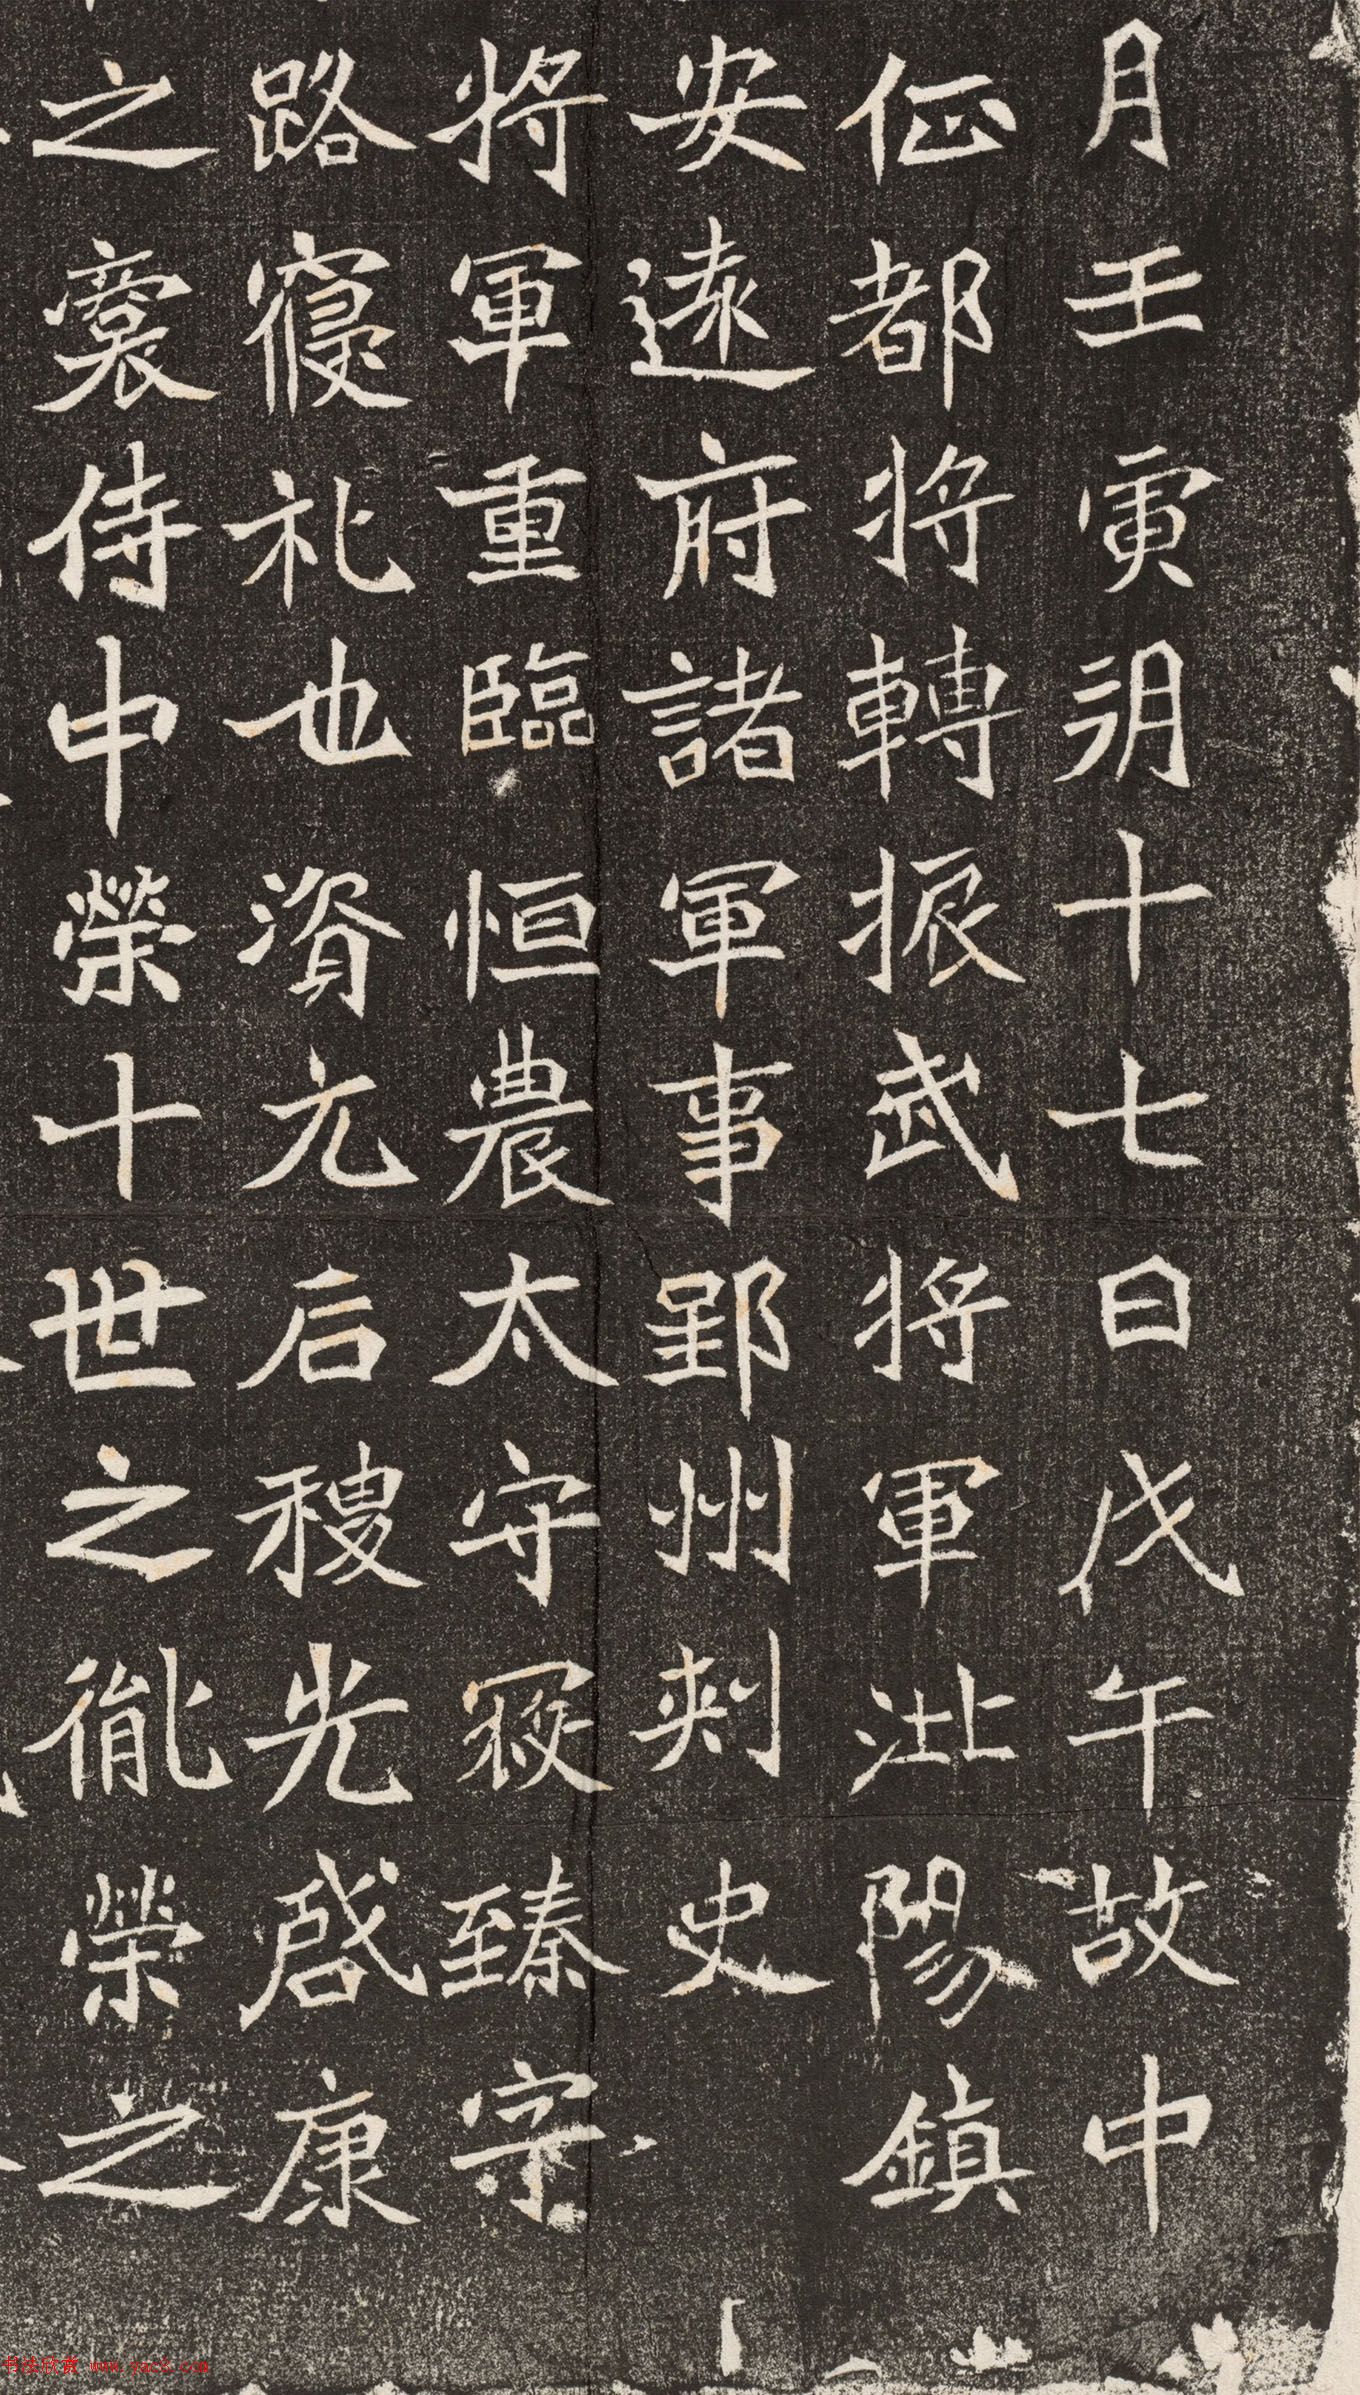 月壬寅朔十七日戊午故中
征都將轉振武將軍沘陽鎮
安遠府諸軍事郢州刺史
將軍重臨恒農太守寇臻字
路寢禮也資元后稷光啓康
之裔侍中榮十世之胤榮之
书法欣赏 www.yac8.com